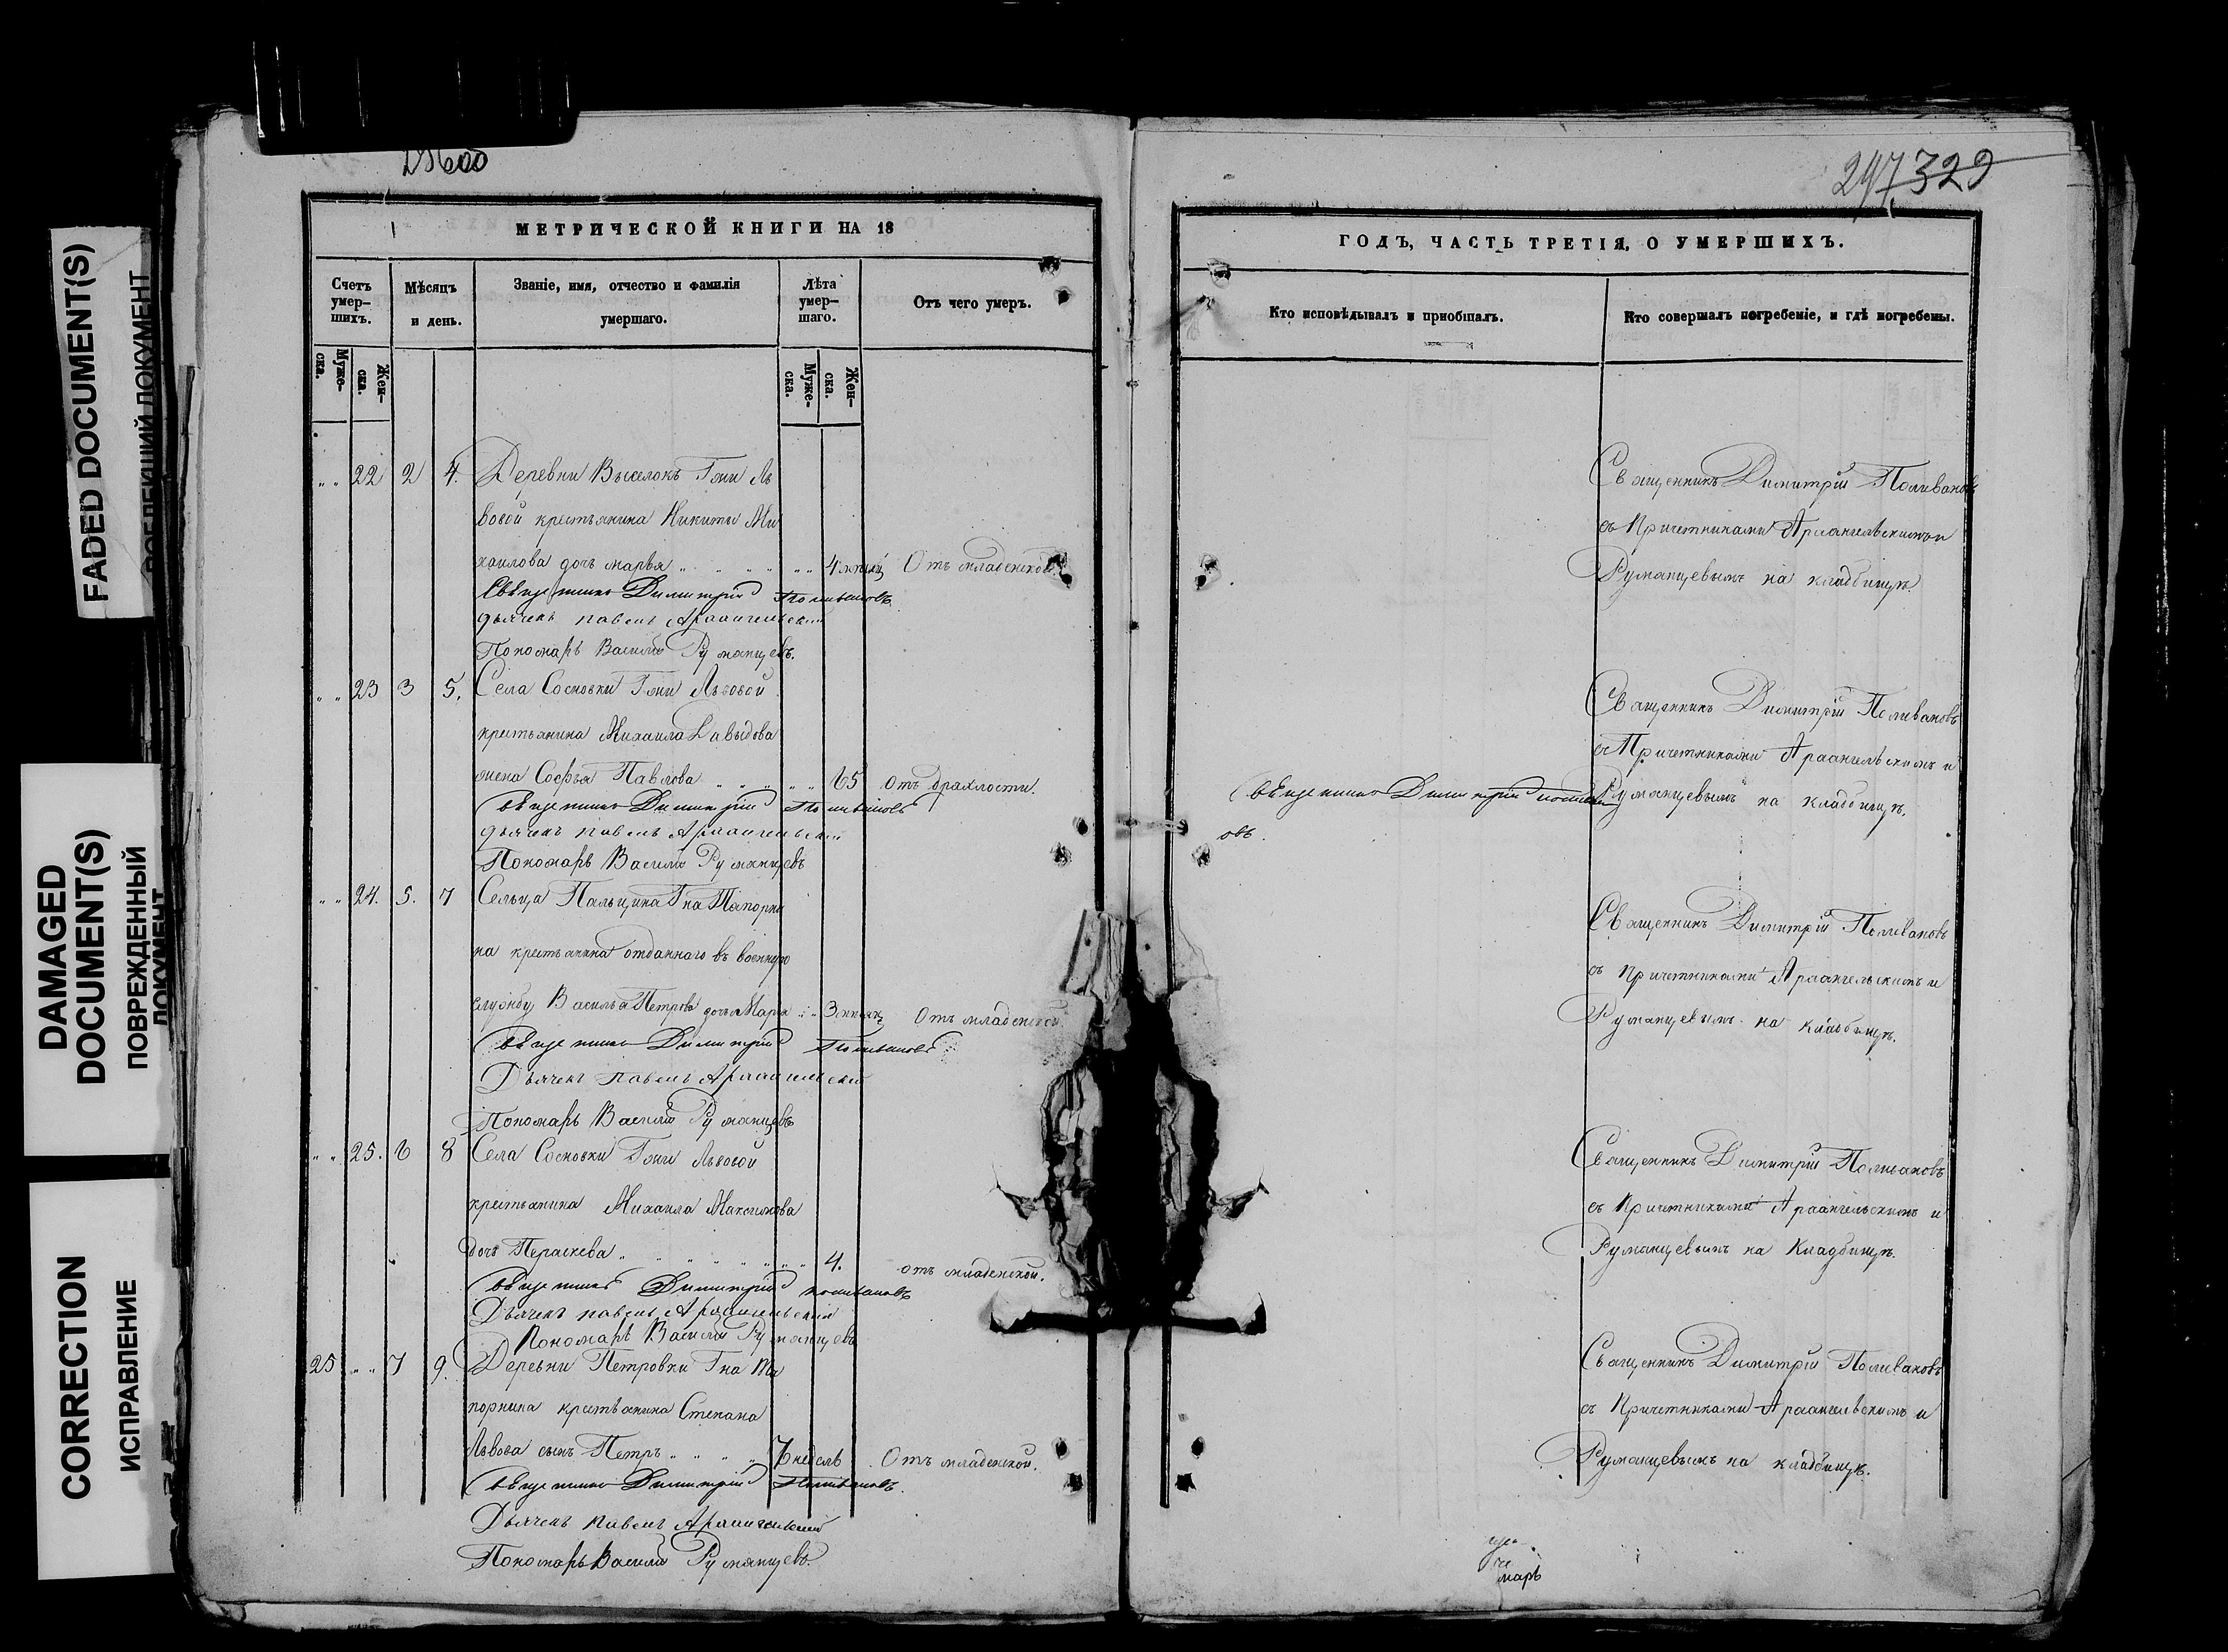 FADED DOCUMENT(S)
DAMAGED
DOCUMENT(S)
ПОВРЕЖДЕННЫЙ
ДОКУМЕНТ
CORRECTION
ИСПРАВЛЕНИЕ
МЕТРИЧЕСКОЙ КНИГИ НА 18
Счетъ умер-шихъ.
Мѣсяцъ и день.
Званіе, имя, отчество и фамилія умершаго.
Лѣта умер-шаго.
Отъ чего умеръ.
Муже-ска.
Жен-ска.
Муже-ска.
Жен-ска.
22 2 4. Деревни Выселокъ Гжи Ль
вовой крестьянина Никиты Ми
хаилова дочь марья 4 Отъ младенской.
Священникъ Димитрій Поливановъ
дьячекъ павелъ Архангельскій
Пономарь Василій Румянцевъ.
23 3 5. Села Сосновки Гжи Львовой
крестьянина Михаила Давыдова
жена Софья Павлова 65 отъ драхлости.
Священникъ Димитрій Поливановъ
дьячекъ павелъ Архангельскій
Пономарь Василій Румянцевъ
24. 5. 7 Сельца Пальцина Гна Топорни
на крестьянина отданнаго въ военную
службу Василья Петрова дочь Марья 3 Отъ младенской.
Священникъ Димитрій Поливановъ
Дьячекъ павелъ Архангельскій
Пономарь Василій Румянцевъ
25. 6 8 Села Сосновки Гжи Львовой
крестьянина Михаила Максимова
дочь Пераскева 4. отъ младенской.
Священникъ Димитрій поливановъ
Дьячекъ павелъ Архангельскій
Пономарь Василій Румянцевъ
25 7 9. Деревни Петровки Гна То
порнина крестьянина Степана
Львова сынъ Петръ недель Отъ младенской.
Священникъ Димитрій Поливановъ.
Дьячекъ павелъ Архангельский
Пономарь Василій Румянцевъ.
329
ГОДЪ, ЧАСТЬ ТРЕТІЯ, О УМЕРШИХЪ.
Кто исповѣдывалъ и пріобщалъ.
Кто совершалъ погребеніе, и гдѣ погребены.
Священникъ Димитрій Поливановъ
съ Причетниками Архангельскимъ и
Румянцевымъ на кладбищѣ.
Священникъ Димитрій Поливановъ
съ Причетниками Архангельскимъ и
Румянцевымъ на кладбищѣ.
Священникъ Димитрій полив
овъ.
Священникъ Димитрій Поливановъ
съ Причетниками Архангельскимъ и
Румянцевымъ на кладбищѣ.
Священникъ Димитрій Поливановъ
съ Причетниками Архангельскимъ и
Румянцевымъ на Кладбищѣ.
Священникъ Димитрій Поливановъ
съ Причетниками Архангельскимъ и
Румянцевымъ на кладбищѣ.
марь